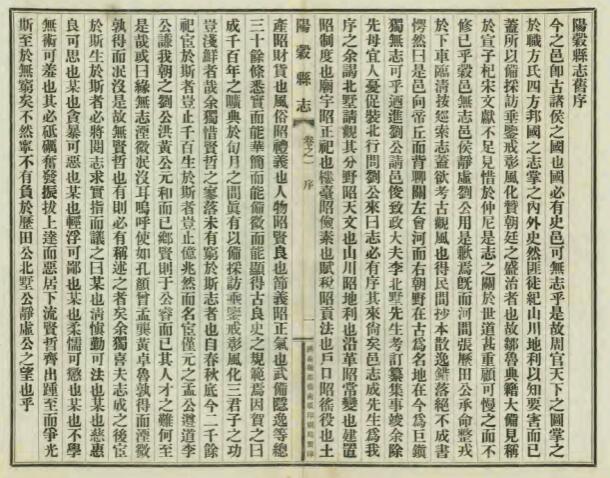 陽穀縣志舊序
今之邑卽古諸侯之國也國必有史邑可無志乎是故周官天下之圖掌之
於職方氏四方邦國之志掌之內外史然匪徒紀山川地利以知要害而已
蓋所以備採訪垂鑒戒彰風化贊朝廷之盛治者也故鄒魯典籍大備見稱
於宣子杞宋文獻不足見惜於仲尼是志之關於世道甚重顧可慢之而不
修已乎穀邑無志邑侯靜虛劉公用是歉焉旣而河間張歷田公承命整戎
於下車臨清按煙索志蓋欲考古觀風也得民間抄本散逸錯落絕不成書
愕然曰是邑向帝丘而背聊關左會河而右朝野在古爲名地在今爲巨鎭
獨無志可乎迺進劉公請邑俊致政大夫李北墅先生考訂纂集事竣余除
先母宜人憂促裝北行問劉公來曰志必有序其來尙矣邑志成先生爲我
序之余謁北墅請觀其分野昭天文也山川昭地利也沿革昭常變也建置
昭制度也廟宇昭正祀也樓臺昭儉素也賦稅昭貢法也戶口昭徭役也土
陽穀縣志
卷之一
序
一
產昭財貨也風俗昭禮義也人物昭賢良也節義昭正氣也武備隱逸等總
三十餘條悉實而能華簡而能備微而能顯得古良史之規範焉因賀之曰
成千百年之曠典於旬月之間眞有以備採訪垂鑒戒彰風化三君子之功
豈淺鮮者哉余獨惜賢哲之寥落未有窮於斯志者也自春秋底今二千餘
祀宦於斯者豈止千百生於斯者豈止億兆然而名宦僅元之孟公遵道李
公謙我朝之劉公洪黃公元和而已鄉賢則于公睿而已其人才之難何至
是哉或曰緣無志湮微泯沒耳嗚呼使如孔顏曾孟龔黃卓魯孰得而湮微
孰得而泯沒是故無賢哲也有則必有稱述之者矣余獨喜夫志成之後宦
於斯生於斯者必將閱志求實指而議之曰某也清愼勤可法也某也慈惠
良可思也某也貪暴可惡也某也輕浮可鄙也某也柔懦可懲也某也不學
無術可羞也其必砥礪奮發振拔上達而惡居下流賢哲齊出踵至而爭光
斯至於無窮矣不然寧不有負於歷田公北墅公靜虛公之望也乎